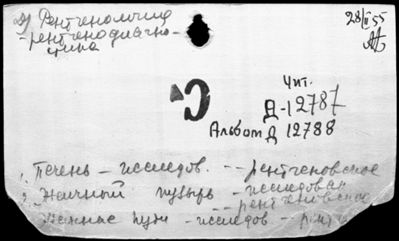 2) Рентгенология
- рентгенодиагно-
стика
28/II 55
Чит.
Д-12787
Альбом Д 12788
1. Печень - исследов. -- рентгеновское
2. Желчный пузырь - исследован
-- рентгеновское
Желчные пути - исследов -- рент